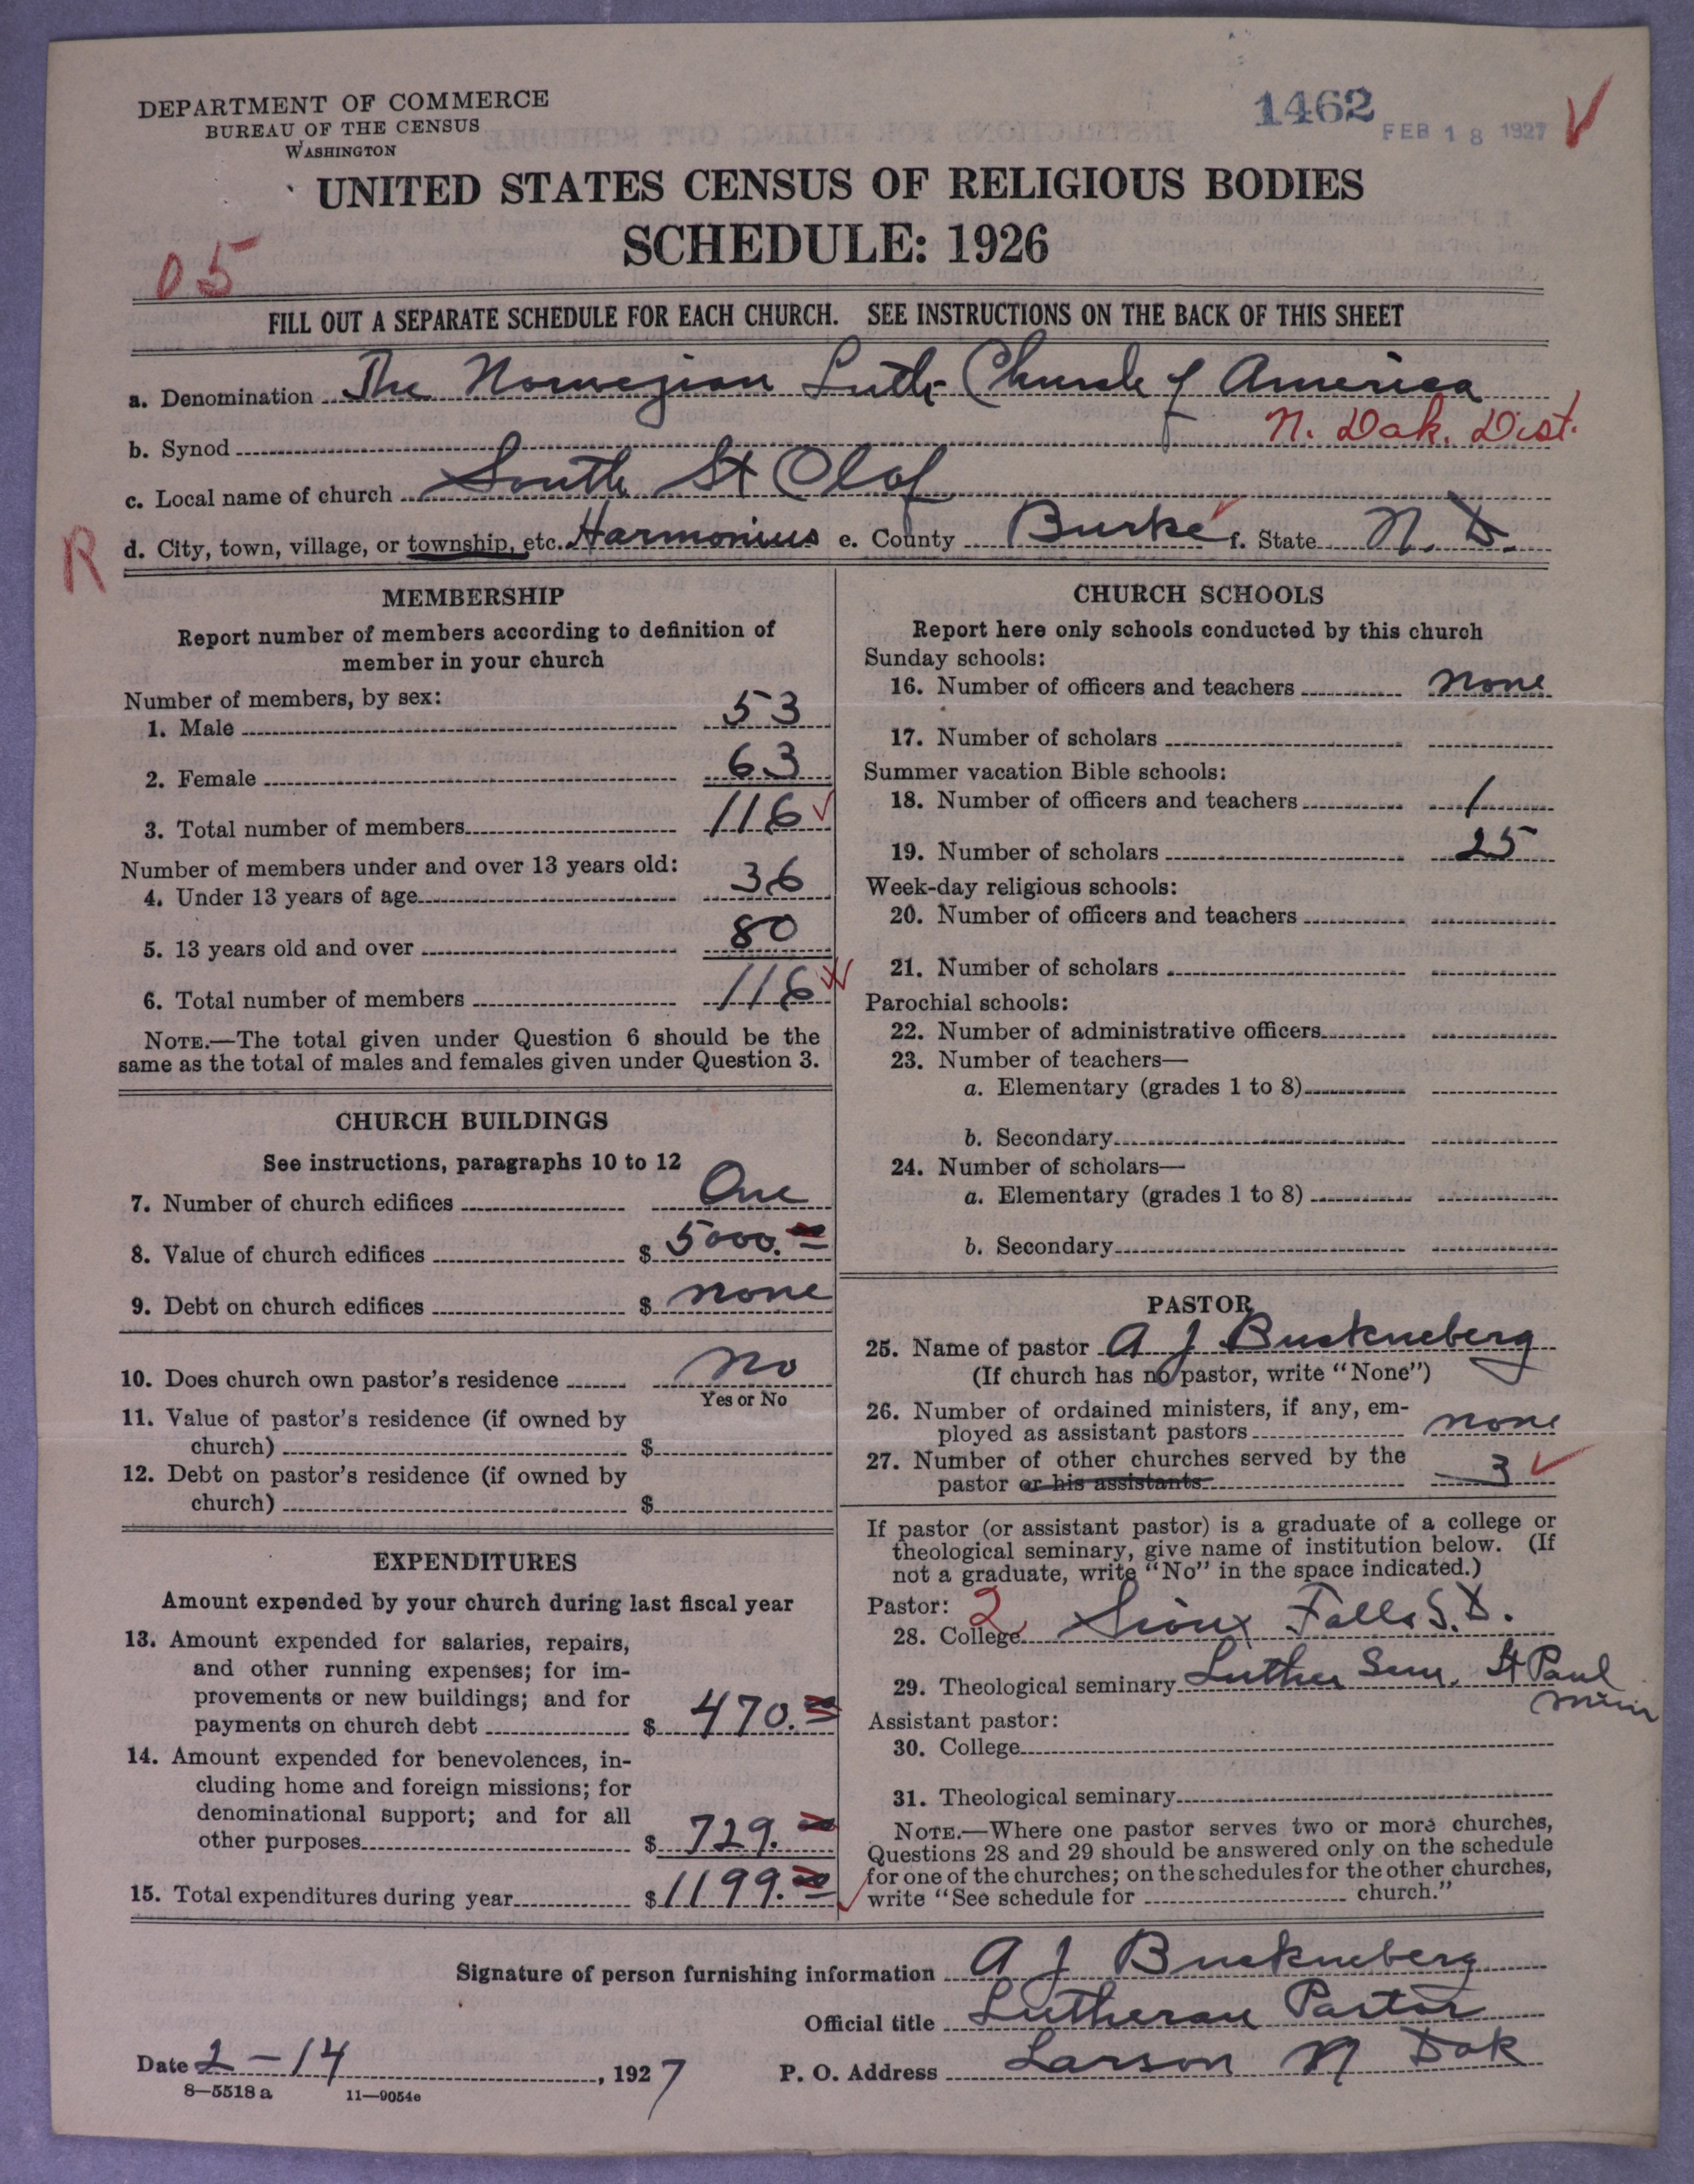 DEPARTMENT OF COMMERCE
BUREAU OF THE CENSUS
WASHINGTON
1462
FEB 18 1927
UNITED STATES CENSUS OF RELIGIOUS BODIES
SCHEDULE: 1926
05
FILL OUT A SEPARATE SCHEDULE FOR EACH CHURCH. SEE INSTRUCTIONS ON THE BACK OF THIS SHEET
a. Denomination The Norwegian Luth. Church of America
b. Synod N. Dak. Dist.
c. Local name of church South St Olof
R
d. City, town, village, or township, etc. Harmonius e. County Burke f. State N. D.
MEMBERSHIP
Report number of members according to definition of
member in your church
Number of members, by sex:
1. Male 53
2. Female 63
3. Total number of members 116
Number of members under and over 13 years old:
4. Under 13 years of age 36
5. 13 years old and over 80
6. Total number of members 116
NOTE.—The total given under Question 6 should be the
same as the total of males and females given under Question 3.
CHURCH BUILDINGS
See instructions, paragraphs 10 to 12
7. Number of church edifices One
8. Value of church edifices $ 5000.
9. Debt on church edifices $ none
10. Does church own pastor's residence No
Yes or No
11. Value of pastor's residence (if owned by
church) $
12. Debt on pastor's residence (if owned by
church) $
EXPENDITURES
Amount expended by your church during last fiscal year
13. Amount expended for salaries, repairs,
and other running expenses; for im-
provements or new buildings; and for
payments on church debt $ 470.
14. Amount expended for benevolences, in-
cluding home and foreign missions; for
denominational support; and for all
other purposes $ 729.
15. Total expenditures during year $ 1199.
CHURCH SCHOOLS
Report here only schools conducted by this church
Sunday schools:
16. Number of officers and teachers none
17. Number of scholars
Summer vacation Bible schools:
18. Number of officers and teachers 1
19. Number of scholars 25
Week-day religious schools:
20. Number of officers and teachers
21. Number of scholars
Parochial schools:
22. Number of administrative officers
23. Number of teachers—
a. Elementary (grades 1 to 8)
b. Secondary
24. Number of scholars—
a. Elementary (grades 1 to 8)
b. Secondary
PASTOR
25. Name of pastor A J Buckneberg
(If church has no pastor, write "None")
26. Number of ordained ministers, if any, em-
ployed as assistant pastors none
27. Number of other churches served by the
pastor or his assistants 3
If pastor (or assistant pastor) is a graduate of a college or
theological seminary, give name of institution below. (If
not a graduate, write "No" in the space indicated.)
Pastor: 2
28. College Sioux Falls S. D.
29. Theological seminary Luther Sem. St Paul
Minn
Assistant pastor:
30. College
31. Theological seminary
NOTE.—Where one pastor serves two or more churches,
Questions 28 and 29 should be answered only on the schedule
for one of the churches; on the schedules for the other churches,
write "See schedule for church."
Signature of person furnishing information A J Buckneberg
Official title Lutheran Pastor
Date 2-14, 1927 P. O. Address Larson N Dak
8—5518 a 11—9054e